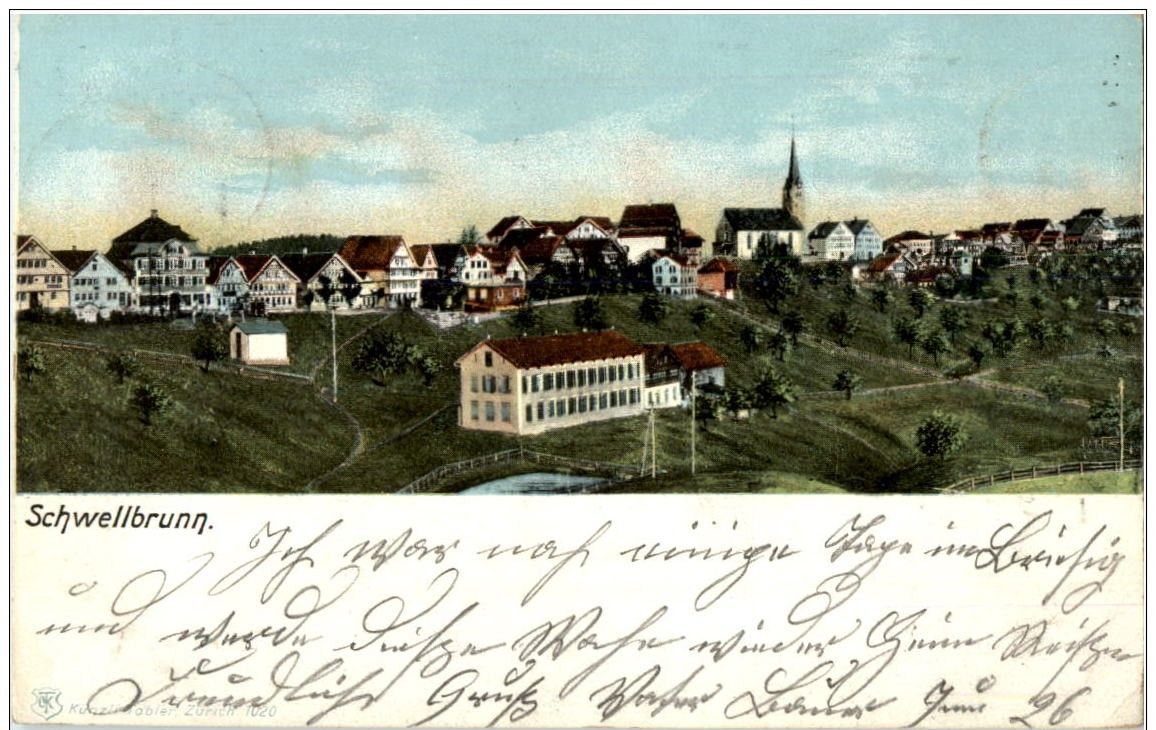 Schwellbrunn.
Ich war noch einige Tage im
und werde diese Woche wieder Heim
Freundliche Gruß Vater Juni 26
Künzli-Tobler, Zürich. 1020